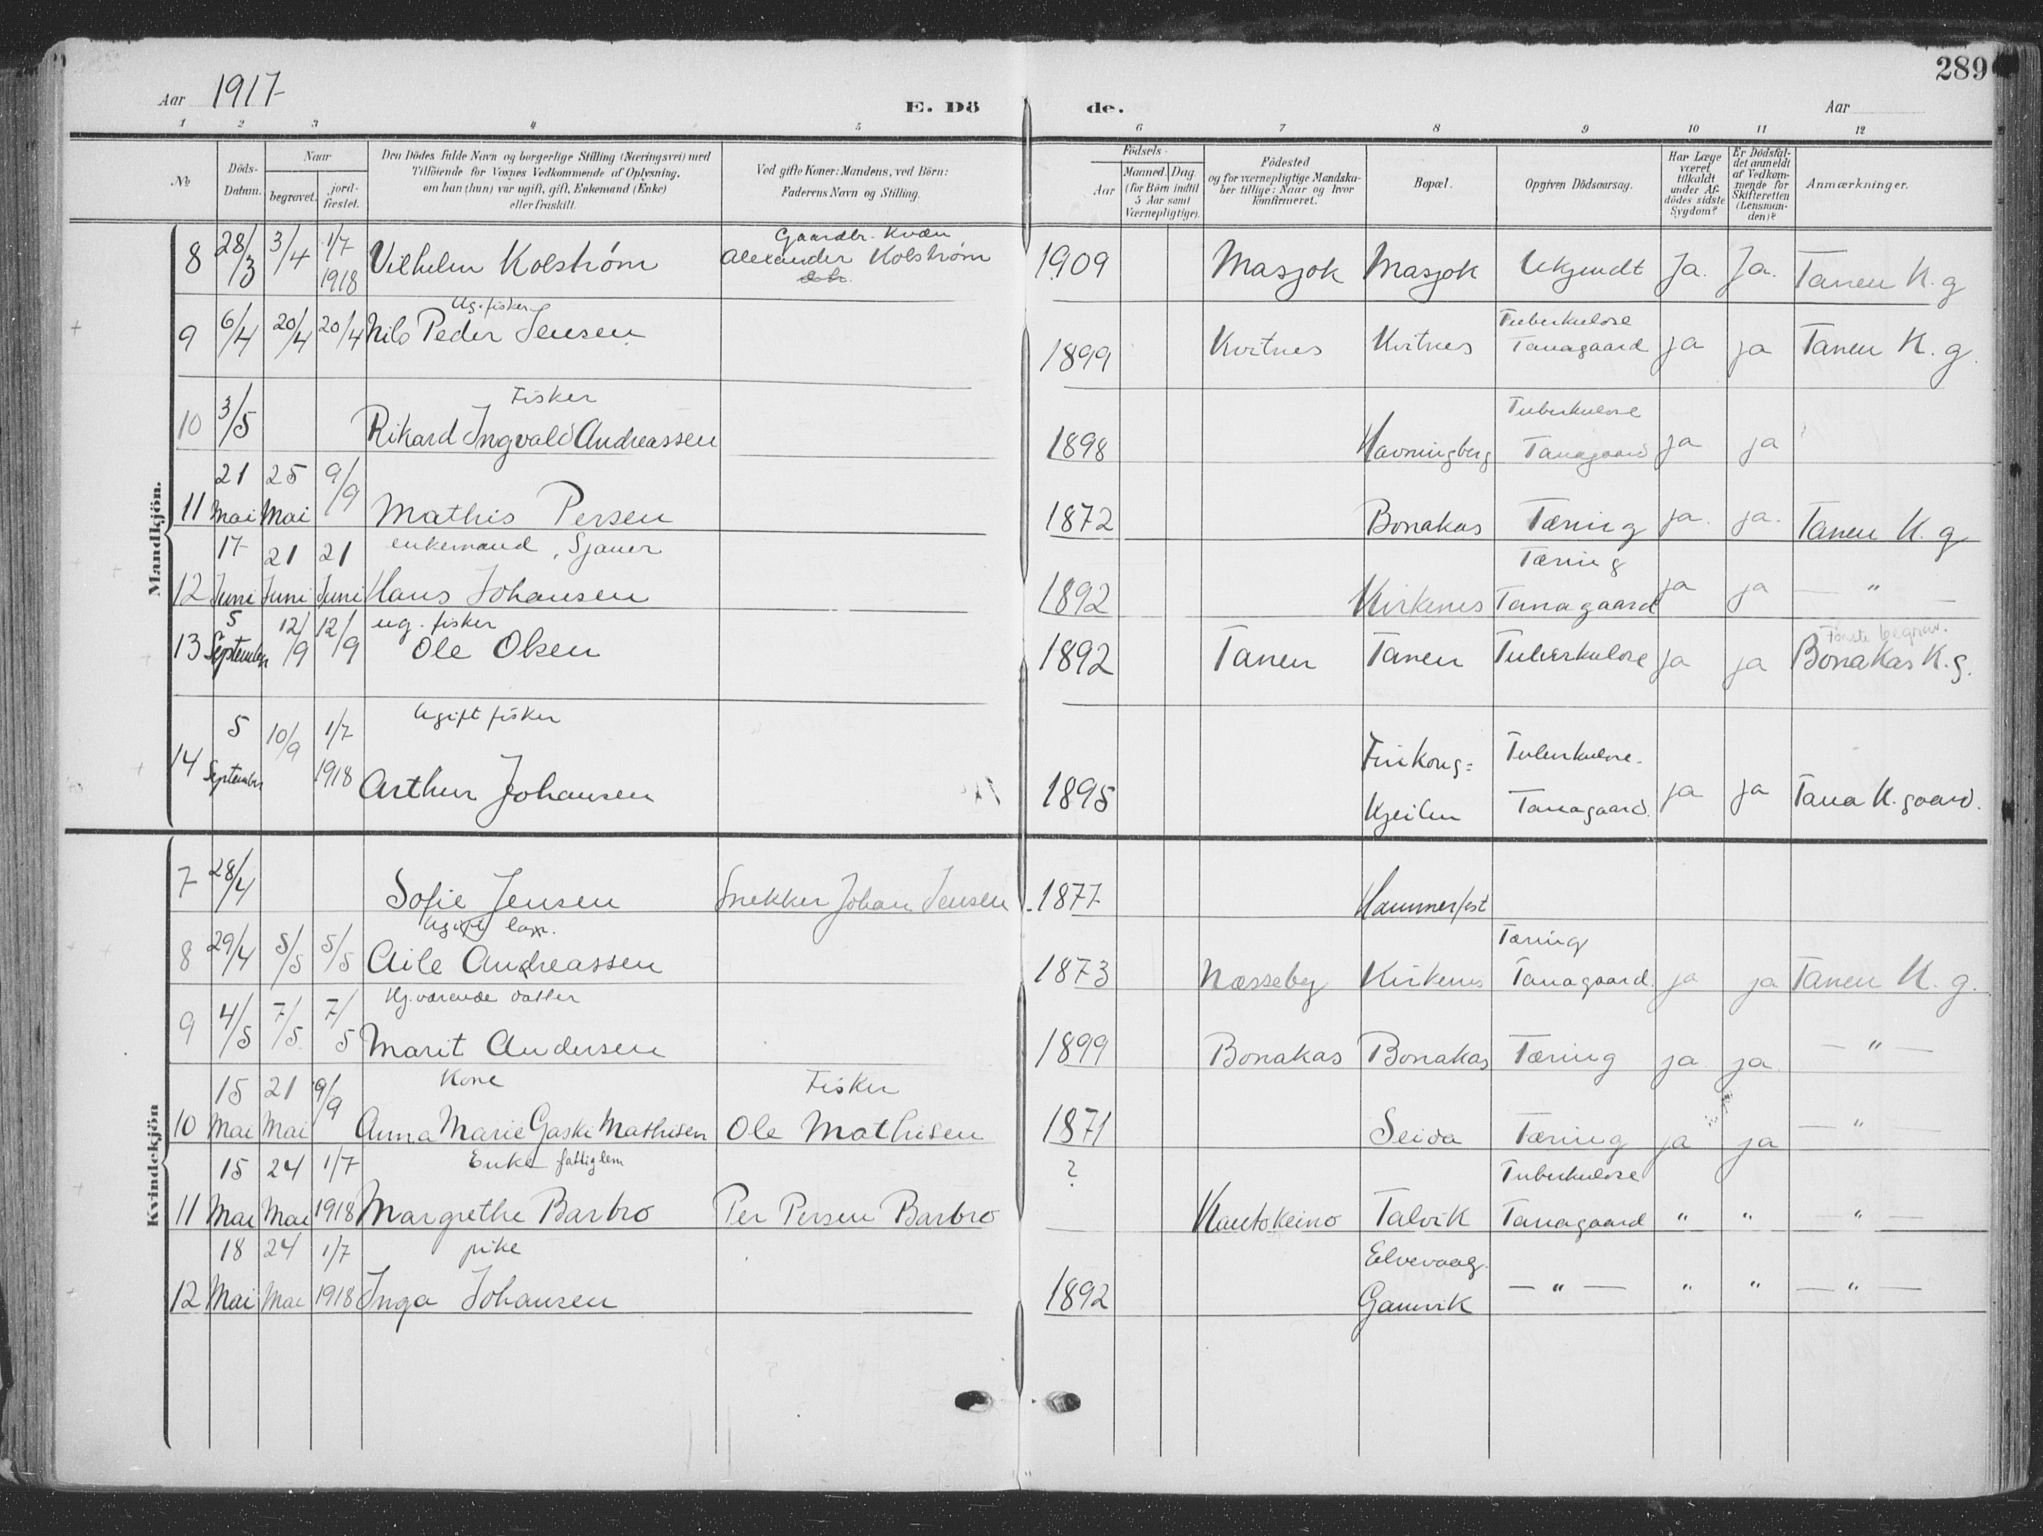 289
Aar 1917 E. Dö de. Aar
1 2 3 4 5 6 7 8 9 10 11 12
No Döds-Datum. Naar begravet. jord-fæstet. Den Dödes fulde Navn og borgerlige Stilling (Næringsvei) med Tilföiende for Voxnes Vedkommende af Oplysning, om han (hun) var ugift, gift, Enkemand (Enke) eller fraskilt. Ved gifte Koner: Mandens, ved Börn: Faderens Navn og Stilling. Födsels- Aar Maaned. Dag. (for Börn indtil 5 Aar samt Værnepligtige). Födested og for værnepligtige Mandskaber tillige: Naar og hvor konfirmeret. Bopæl. Opgiven Dödsaarsag. Har Læge været tilkaldt under Afdödes sidste Sygdom? Er Dödsfaldet anmeldt af Vedkommende for Skifteretten (Lensmanden)? Anmærkninger.
Mandkjön.
Gaardbr. Kvæn
8 28/3 3/4 1/7 1918 Vilhelm Kolstrøm Alexander Kolstrøm 1909 Masjok Masjok Ukjendt Ja. Ja. Tanen K. g
Ug. fisker Tuberkulose
9 6/4 20/4 20/4 Nils Peder Jensen 1899 Kvitnes Kvitnes Tanagaard ja ja Tanen K. g.
Fisker Tuberkulose
10 3/5 Rikard Ingvald Andreassen 1898 Havningberg Tanagaard ja ja
11 21 Mai 25 Mai 9/9 Mathis Persen 1872 Bonakas Tæring ja. ja. Tanen K. g
enkemand, Sjauer Tæring
12 17 Juni 21 Juni 21 Juni Hans Johansen 1892 Kirkenes Tanagaard ja ja — " —
ug. fisker Første begrav.
13 5 September 12/9 12/9 Ole Olsen 1892 Tanen Tanen Tuberkulose ja ja Bonakas K. g.
Ugift fisker Finkong= Tuberkulose.
14 5 September 10/9 1/7 1918 Arthur Johansen 1895 Kjeilen Tanagaard. ja ja Tana K. gaard.
Kvindekjön
7 28/4 Sofie Jensen Snekker Johan Jensen 1877 Hammerfest
Ugift Tæring
8 29/4 5/5 5/5 Aile Andreassen 1873 Næsseby Kirkenes Tanagaard. ja ja Tanen K. g.
Hj. værende datter
9 4/5 7/5. 7/5 Marit Andersen 1899 Bonakas Bonakas Tæring ja ja — " —
Kone Fisker
10 15 Mai 21 Mai 9/9 Anna Marie Gaski Mathisen Ole Mathisen 1871 Seida Tæring ja ja — " —
Enke fattiglem ? Tuberkulose
11 15 Mai 24 Mai 1/7 1918 Margrethe Barbro Per Persen Barbro — Kautokeino Talvik Tanagaard " " — " —
pike Eelvevaag.
12 18 Mai 24 Mai 1/7 1918 Inga Johansen 1892 Gamvik — " — " " — " —